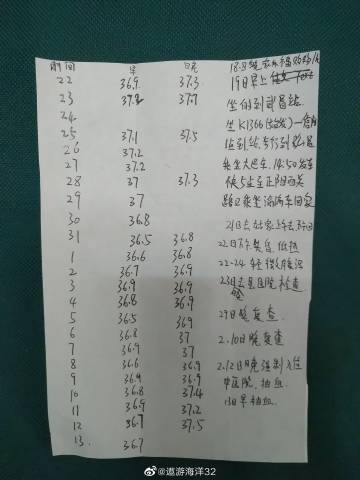 时间 早 晚
22 36.9 37.3
23 37.2 37.7
24
25 37.1 37.5
26 37.2
27 37.2
28 37 37.3
29 37
30 36.8
31 36.5 36.8
1 36.6 36.8
2 36.7 36.9
3 36.9 36.9
4 36.8 36.9
5 36.5 36.9
6 36.8 37
7 36.9 37
8 36.6 36.9
9 36.9 36.9
10 36.8 37.4
11 36.9 37.2
12 36.7 37.5
13. 36.7
19日早上
坐的到武昌站
坐K1366
站到站
转坐大巴车. 14:50发车
快5点至正阳西关
路口乘坐 车回家
21日去
22日 低热
22-24 轻微腹泻
23日去县医院检查
29日晚复查
2.10日晚复查
2.12日晚强制入住
中医院. 抽血.
13日早抽血
@遨游海洋32